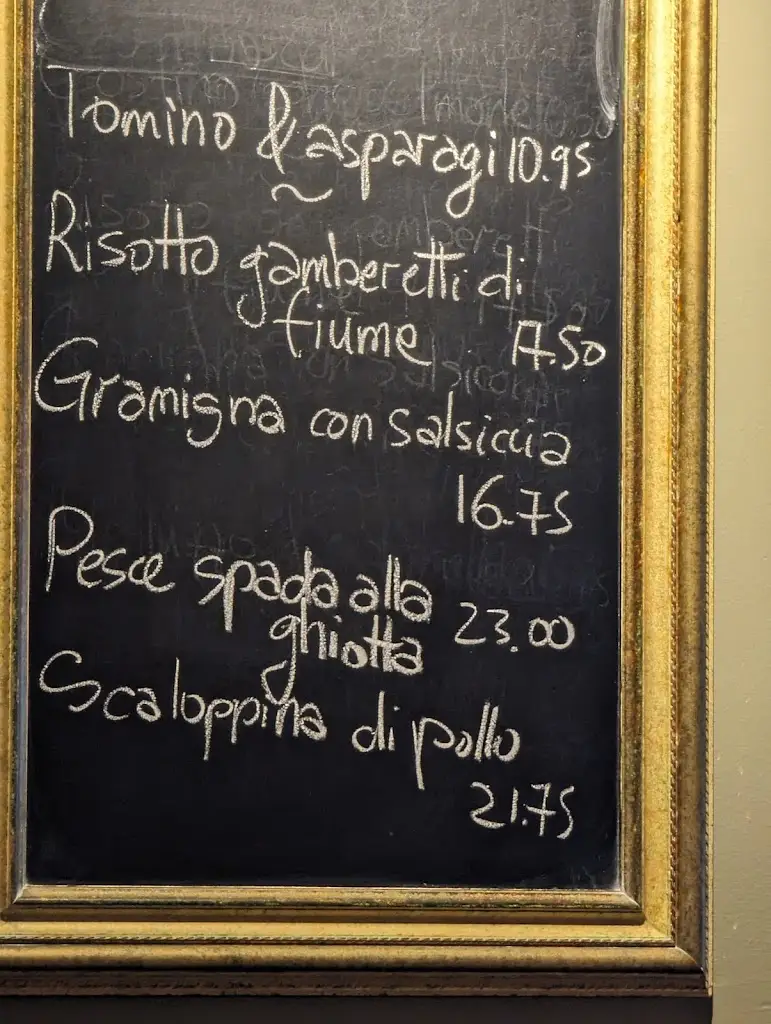 Tomino & asparagi 10.95
Risotto gamberetti di
fiume 17.50
Gramigna con salsiccia
16.75
Pesce spada alla 23.00
ghiotta
Scaloppina di pollo
21.75